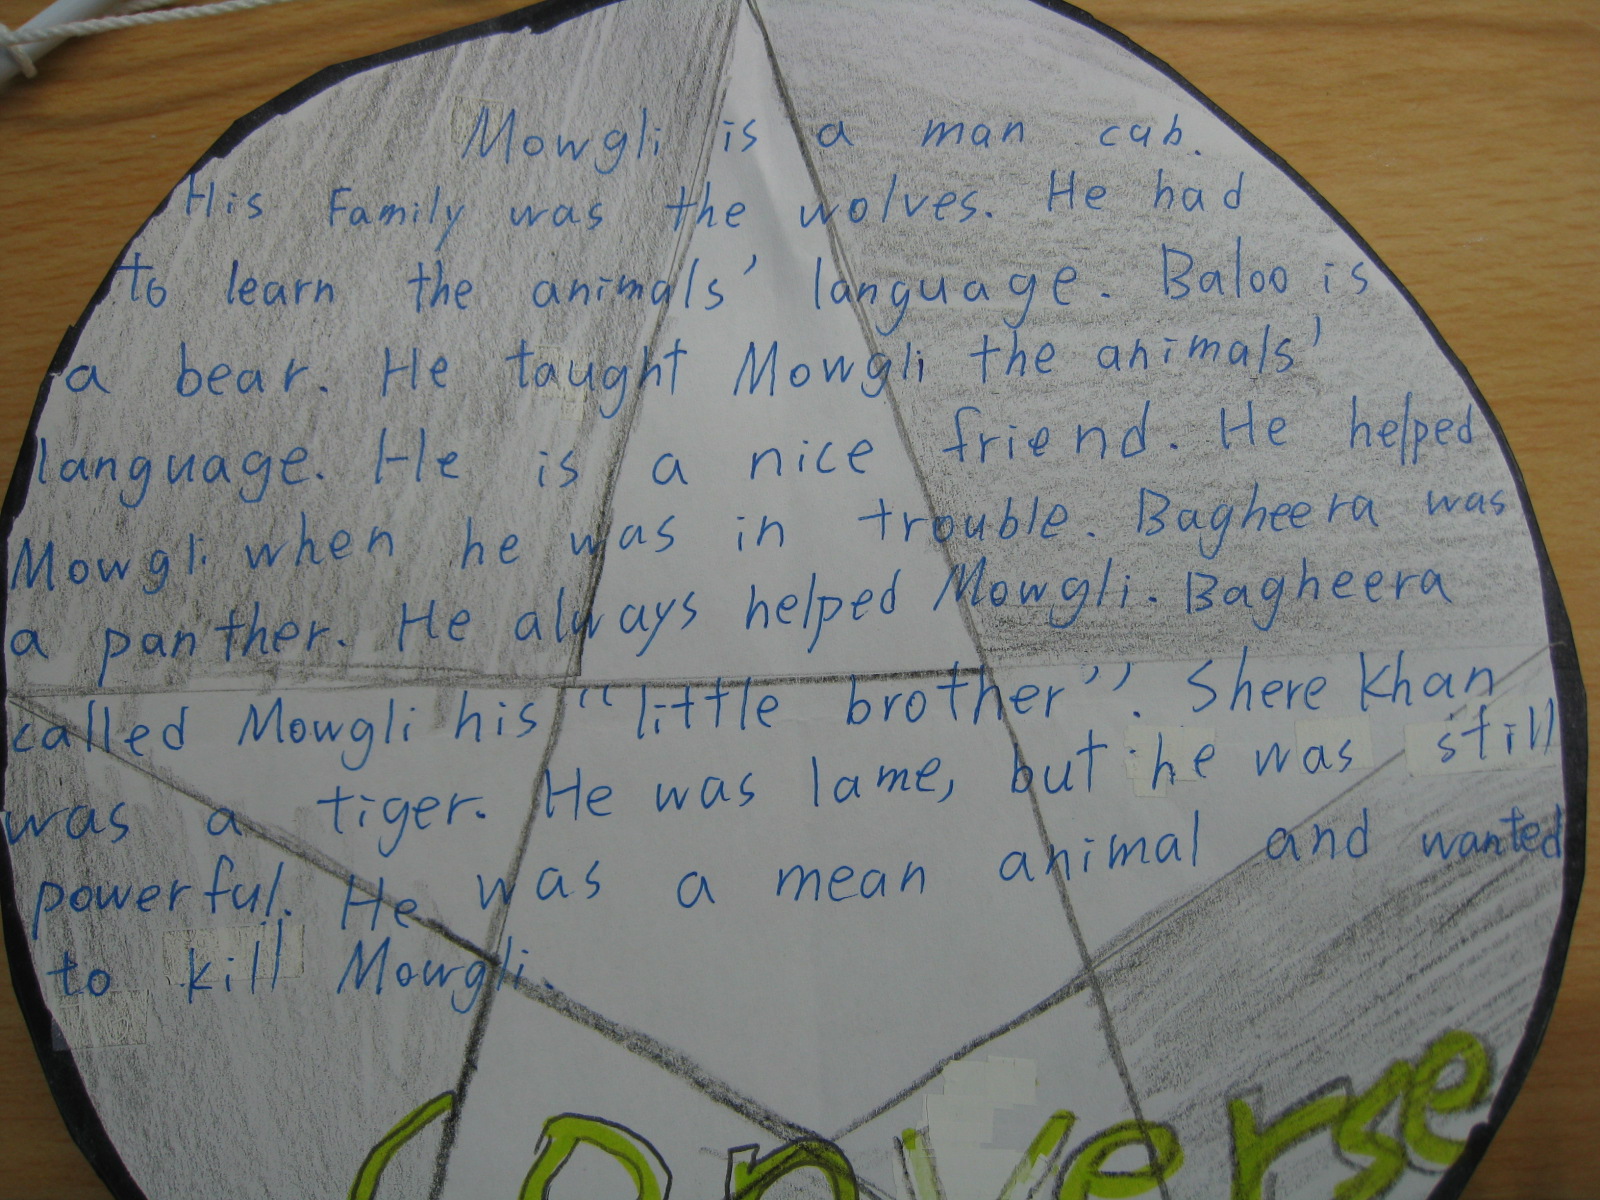 Mowgli is a man cub.
His Family was the wolves. He had
to learn the animals' language. Baloo is
a bear. He taught Mowgli the animals'
language. He is a nice friend. He helped
Mowgli when he was in trouble. Bagheera was
a panther. He always helped Mowgli. Bagheera
called Mowgli his "little brother". Shere Khan
was a tiger. He was lame, but he was still
powerful. He was a mean animal and wanted
to kill Mowgli.
Converse